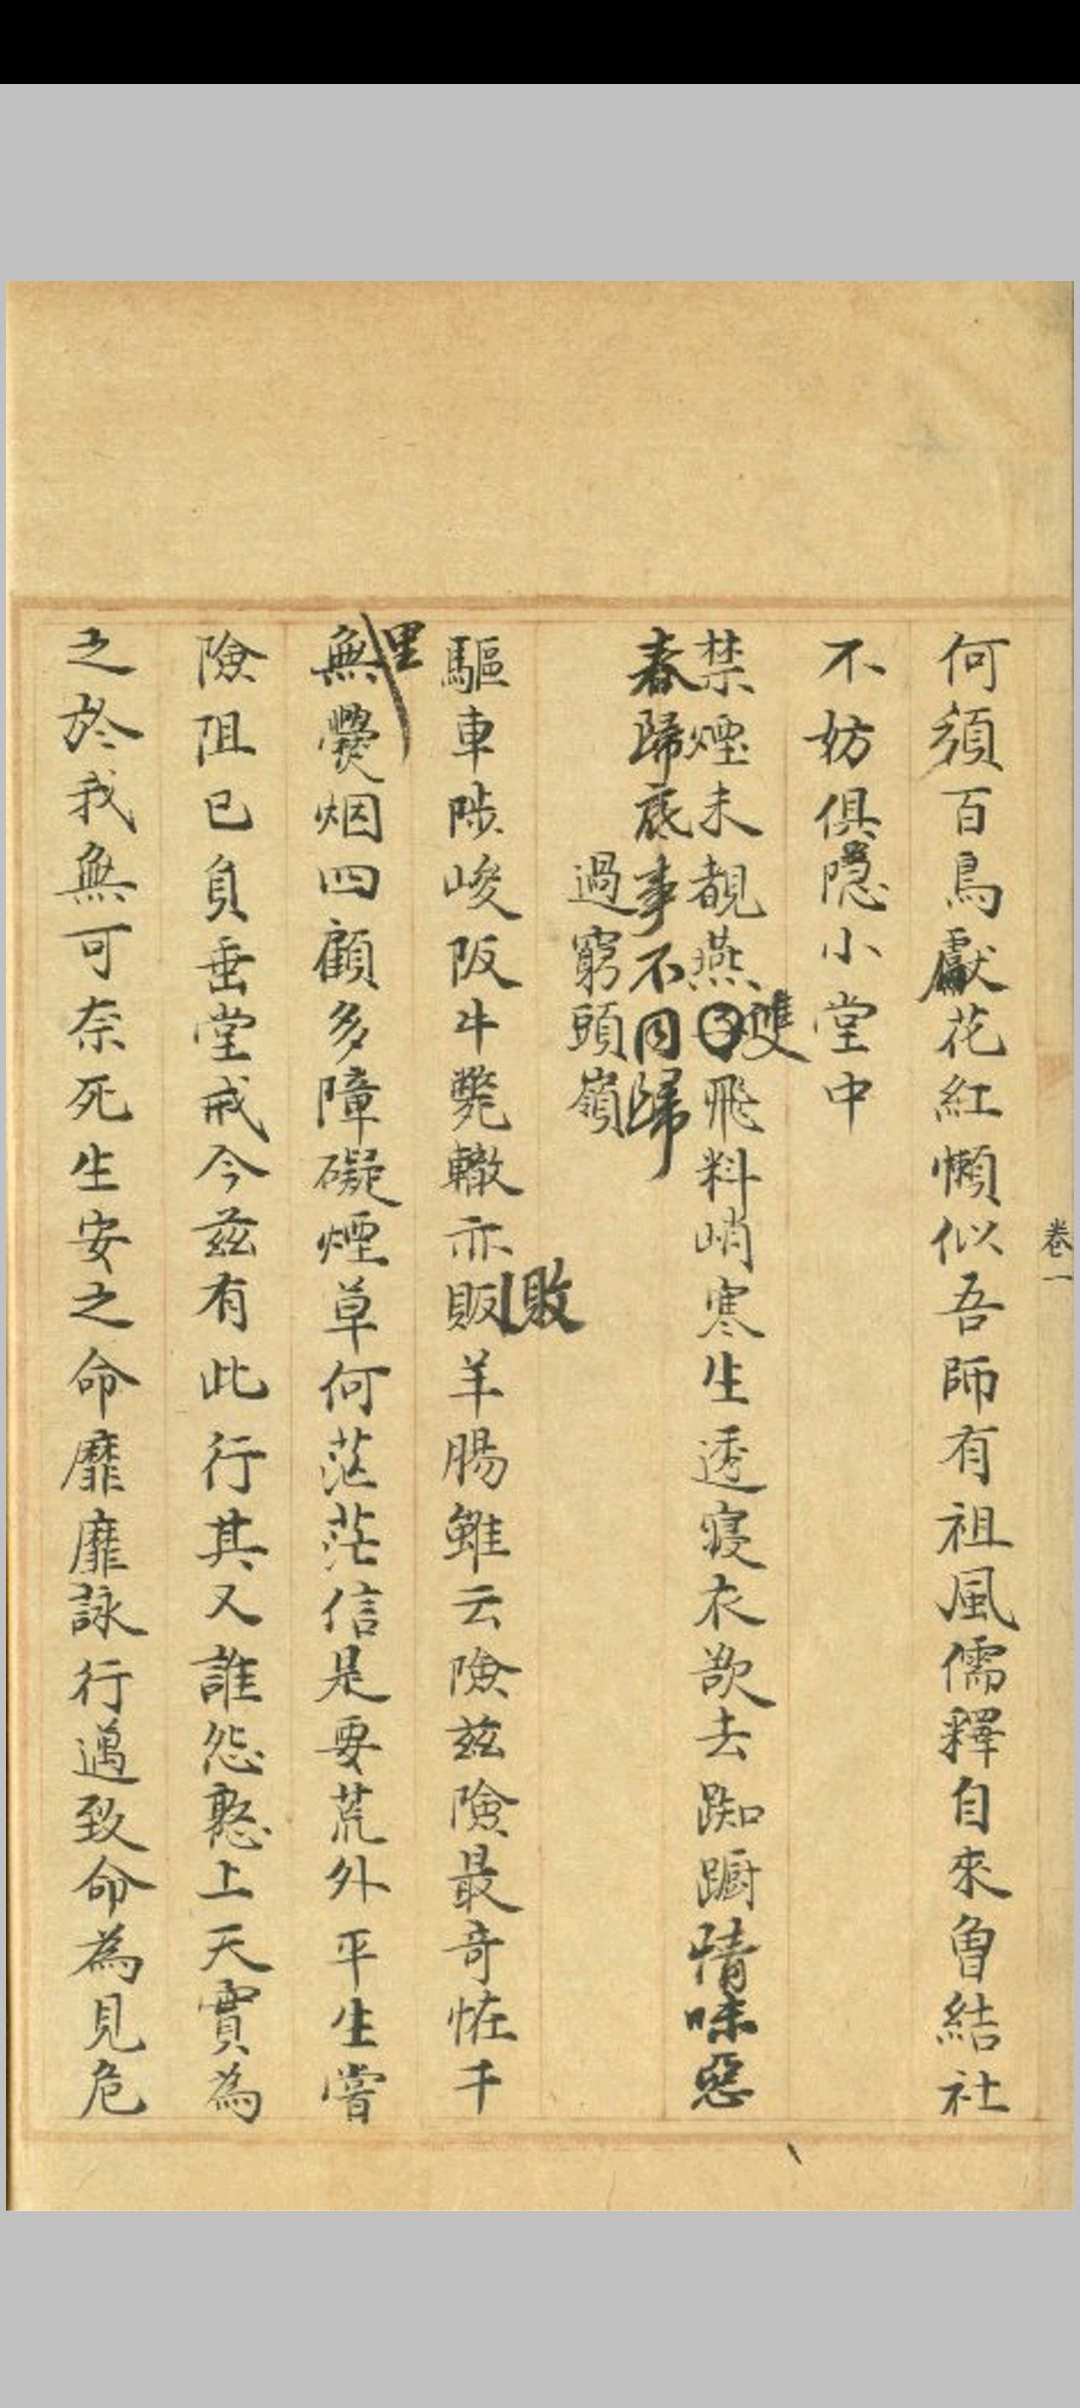 卷一
何須百鳥獻花紅懶似吾師有祖風儒釋自來曾結社
不妨俱隱小堂中
雙
禁煙未覩燕飛料峭寒生透寝衣欲去踟蹰情味惡
春歸底事不同歸
過窮頭嶺
敗
驅車陟峻阪牛斃轍亦販羊腸雖云險兹險最奇恠千
里
無爨烟四顧多障礙煙草何茫茫信是要荒外平生嘗
險阻已負垂堂戒今兹有此行其又誰怨憝上天實為
之於我無可奈死生安之命靡靡詠行邁致命為見危